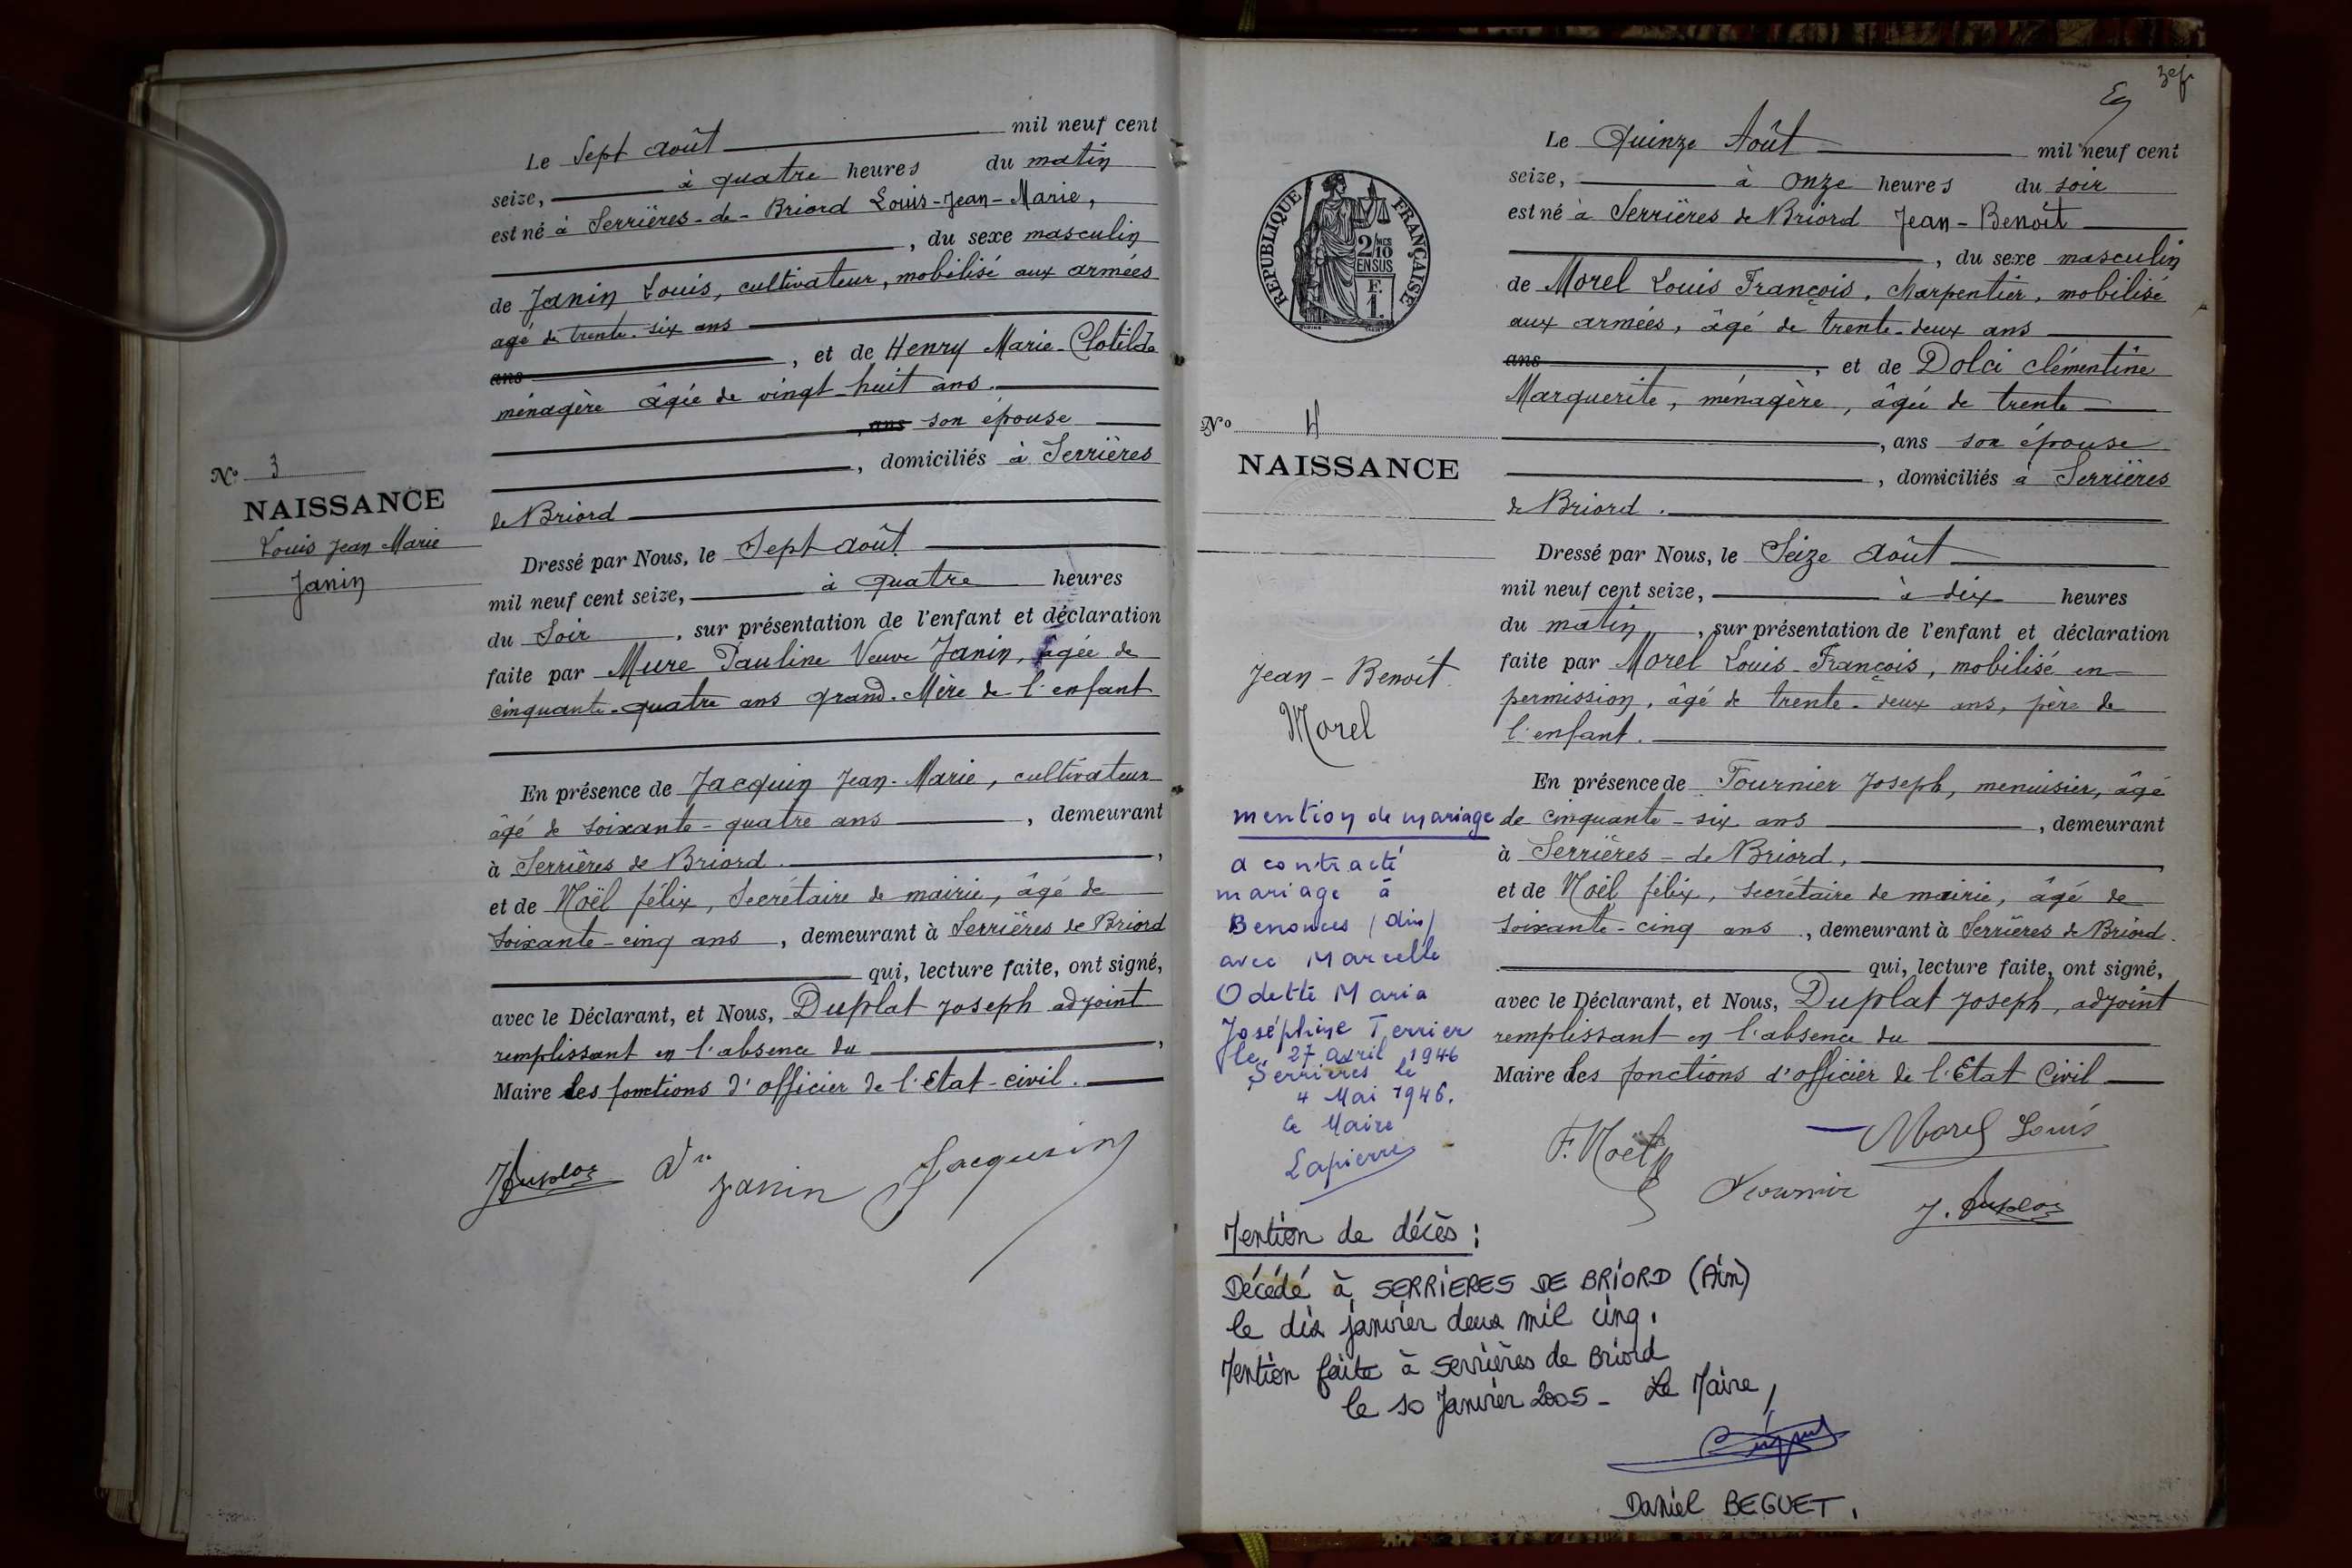 Le Sept août mil neuf cent
seize, à quatre heures du matin
est né à Serrières-de-Briord Louis-Jean-Marie,
, du sexe masculin
de Janin Louis, cultivateur, mobilisé aux armées
agé de trente-six ans
ans , et de Henry Marie-Clotilde
ménagère âgée de vingt-huit ans.
, ans son épouse
, domiciliés à Serrières
de Briord
Dressé par Nous, le Sept août
mil neuf cent seize, à quatre heures
du Soir , sur présentation de l'enfant et déclaration
faite par Mure Pauline Veuve Janin, âgée de
cinquante-quatre ans grand-Mère de l'enfant
En présence de Jacquin Jean-Marie, cultivateur
âgé de soixante-quatre ans , demeurant
à Serrières de Briord. ,
et de Noël félix, Secrétaire de mairie, âgé de
soixante-cinq ans , demeurant à Serrières de Briord
qui, lecture faite, ont signé,
avec le Déclarant, et Nous, Duplat Joseph adjoint
remplissant en l'absence du ,
Maire les fonctions d'officier de l'Etat-civil.
J Duplat Vve Janin Jacquin
No 3
NAISSANCE
Louis Jean Marie
Janin
Le Quinze Août mil neuf cent
seize, à onze heures du soir
est né à Serrières de Briord Jean-Benoît
, du sexe masculin
de Morel Louis François, charpentier, mobilisé
aux armées, âgé de trente-deux ans
ans , et de Dolci clémentine
Marguerite, ménagère, âgée de trente
, ans son épouse
, domiciliés à Serrières
de Briord.
Dressé par Nous, le Seize août
mil neuf cent seize, à dix heures
du matin , sur présentation de l'enfant et déclaration
faite par Morel Louis-François, mobilisé en
permission, âgé de trente-deux ans, père de
l'enfant.
En présence de Fournier Joseph, menuisier, âgé
de cinquante-six ans , demeurant
à Serrières-de Briord, ,
et de Noël félix, secrétaire de mairie, âgé de
soixante-cinq ans , demeurant à Serrières de Briord.
qui, lecture faite, ont signé,
avec le Déclarant, et Nous, Duplat Joseph, adjoint
remplissant en l'absence du
Maire les fonctions d'officier de l'Etat Civil
F. Noël Morel Louis
Fournier J. Duplat
RÉPUBLIQUE FRANÇAISE
2/10 MES
EN SUS
F.
1.
No 4
NAISSANCE
Jean-Benoît
Morel
mention de mariage
a contracté
mariage à
Benonces (Ain)
avec Marcelle
Odette Maria
Joséphine Terrier
le 27 avril 1946
Serrières le
4 Mai 1946.
le Maire
Lapierre
Mention de décès :
Décédé à SERRIERES DE BRIORD (Ain)
le dix janvier deux mil cinq.
Mention faite à Serrières de Briord
le 10 Janvier 2005 - Le Maire,
Daniel BEGUET.